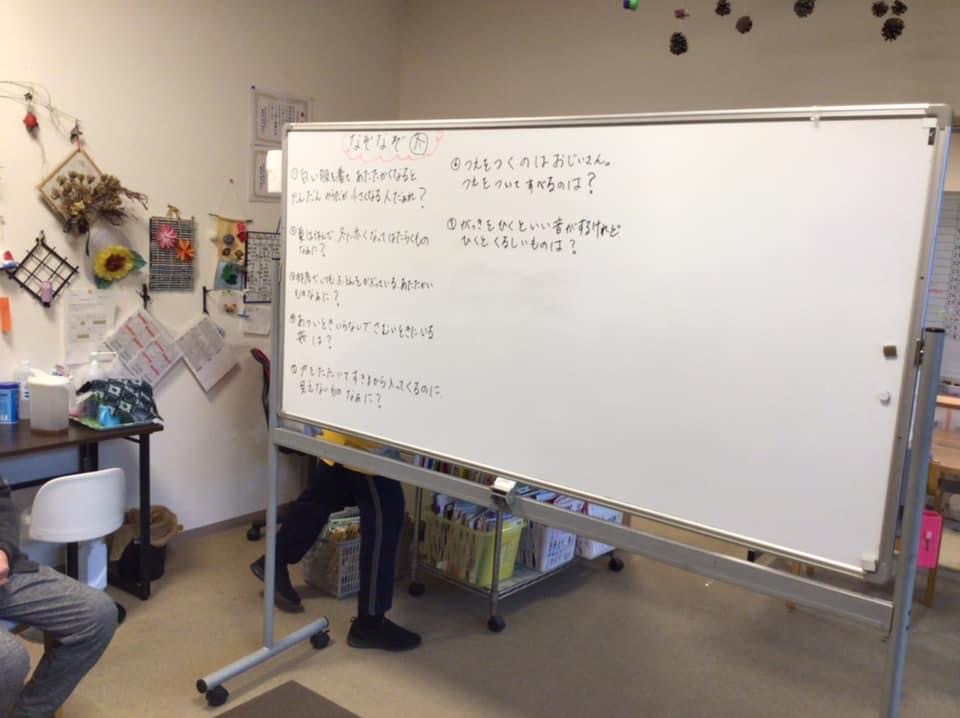 なぞなぞ 冬
① 白い服を着て あたたかくなると
だんだん からだが 小さくなる人 だぁれ?
② 夏は休んで 冬に赤くなってはたらくもの
なぁに?
③ いつも ふとんをかぶっている、あたたかい
ものなぁに?
④ あついとき いらないで さむいときにいる
は?
⑤ 戸をたたいて すきまから入ってくるのに、
見えないもの なぁに?
⑥ つえをつくのは おじいさん。
つえをついて すべるのは?
⑦ がっきをひくと いい音がするけれど
ひくと くるしいものは?